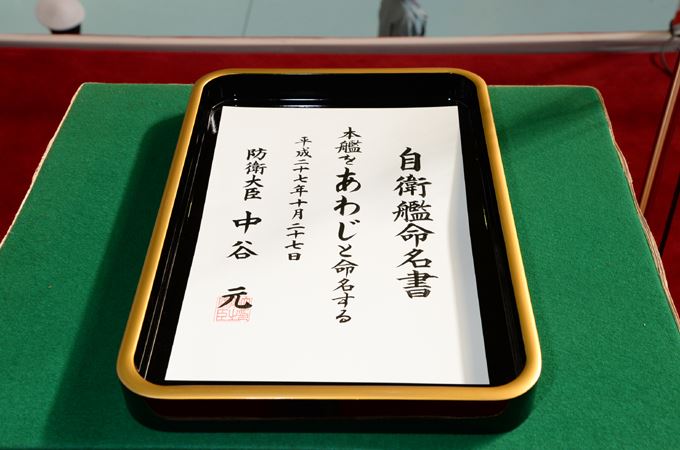 自衛艦命名書
本艦をあわじと命名する
平成二十七年十月二十七日
防衛大臣 中谷 元